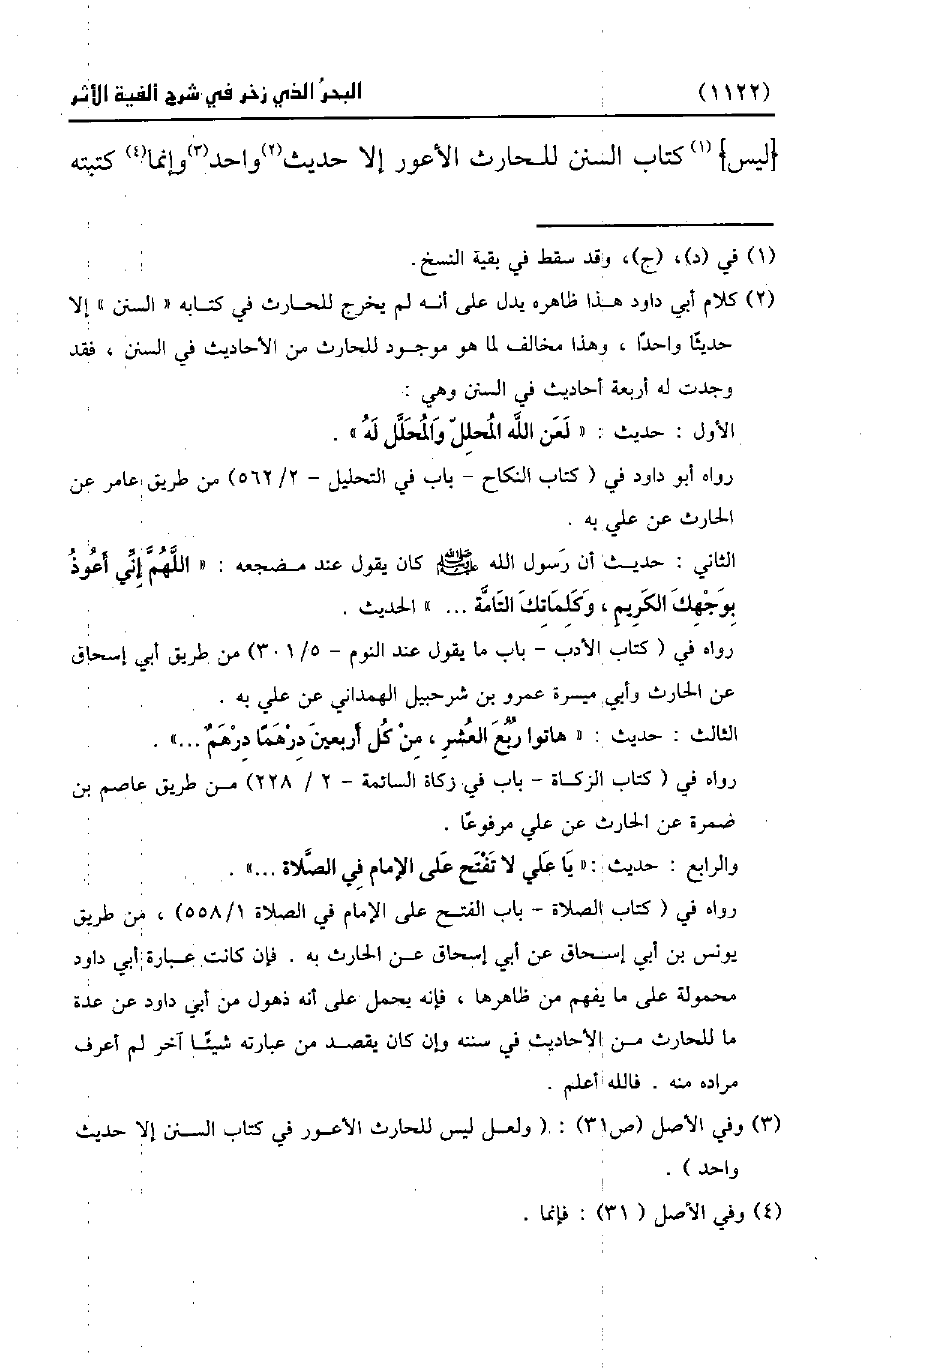 (١١٢٢) البحرُ الذي زخر في شرح ألفية الأثر
{ليس}(١) كتاب السنن للحارث الأعور إلا حديث(٢) واحد(٣) وإنما(٤) كتبته
(١) في (د)، (ج)، وقد سقط في بقية النسخ.
(٢) كلام أبي داود هذا ظاهره يدل على أنه لم يخرج للحارث في كتابه « السنن » إلا
حديثًا واحدًا ، وهذا مخالف لما هو موجود للحارث من الأحاديث في السنن ، فقد
وجدت له أربعة أحاديث في السنن وهي :
الأول : حديث : « لَعَن اللَّه المُحلِلّ وَالمُحَلَّل لَهُ » .
رواه أبو داود في ( كتاب النكاح – باب في التحليل – ٥٦٢/٢) من طريق عامر عن
الحارث عن علي به .
الثاني : حديث أن رَسول الله ﷺ كان يقول عند مضجعه : « اللَّهُمَّ إنِّي أعُوذُ
بِوَجْهِكَ الكَرِيم ، وَكَلِمَاتِكَ التَامَّة ... » الحديث .
رواه في ( كتاب الأدب – باب ما يقول عند النوم – ٣٠١/٥) من طريق أبي إسحاق
عن الحارث وأبي ميسرة عمرو بن شرحبيل الهمداني عن علي به .
الثالث : حديث : « هاتوا رُبُعَ العُشرِ ، مِنْ كُل أربعينَ دِرْهَمًا دِرْهَمٌ ...» .
رواه في ( كتاب الزكاة – باب في زكاة السائمة – ٢ / ٢٢٨) من طريق عاصم بن
ضمرة عن الحارث عن علي مرفوعًا .
والرابع : حديث : « يَا عَلي لا تَفْتَح عَلى الإمام فِي الصَّلاة ...» .
رواه في ( كتاب الصلاة – باب الفتح على الإمام في الصلاة ٥٥٨/١) ، من طريق
يونس بن أبي إسحاق عن أبي إسحاق عن الحارث به . فإن كانت عبارة أبي داود
محمولة على ما يفهم من ظاهرها ، فإنه يحمل على أنه ذهول من أبي داود عن عدة
ما للحارث من الأحاديث في سننه وإن كان يقصد من عبارته شيئًا آخر لم أعرف
مراده منه . فالله أعلم .
(٣) وفي الأصل (ص٣١) : ( ولعل ليس للحارث الأعور في كتاب السنن إلا حديث
واحد ) .
(٤) وفي الأصل ( ٣١) : فإنما .